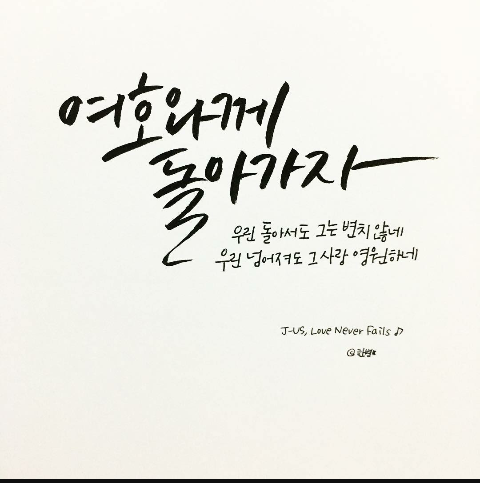 여호와께
돌아가자
우린 돌아서도 그는 변치 않네
우린 넘어져도 그 사랑 영원하네
J-US, Love Never Fails ♪